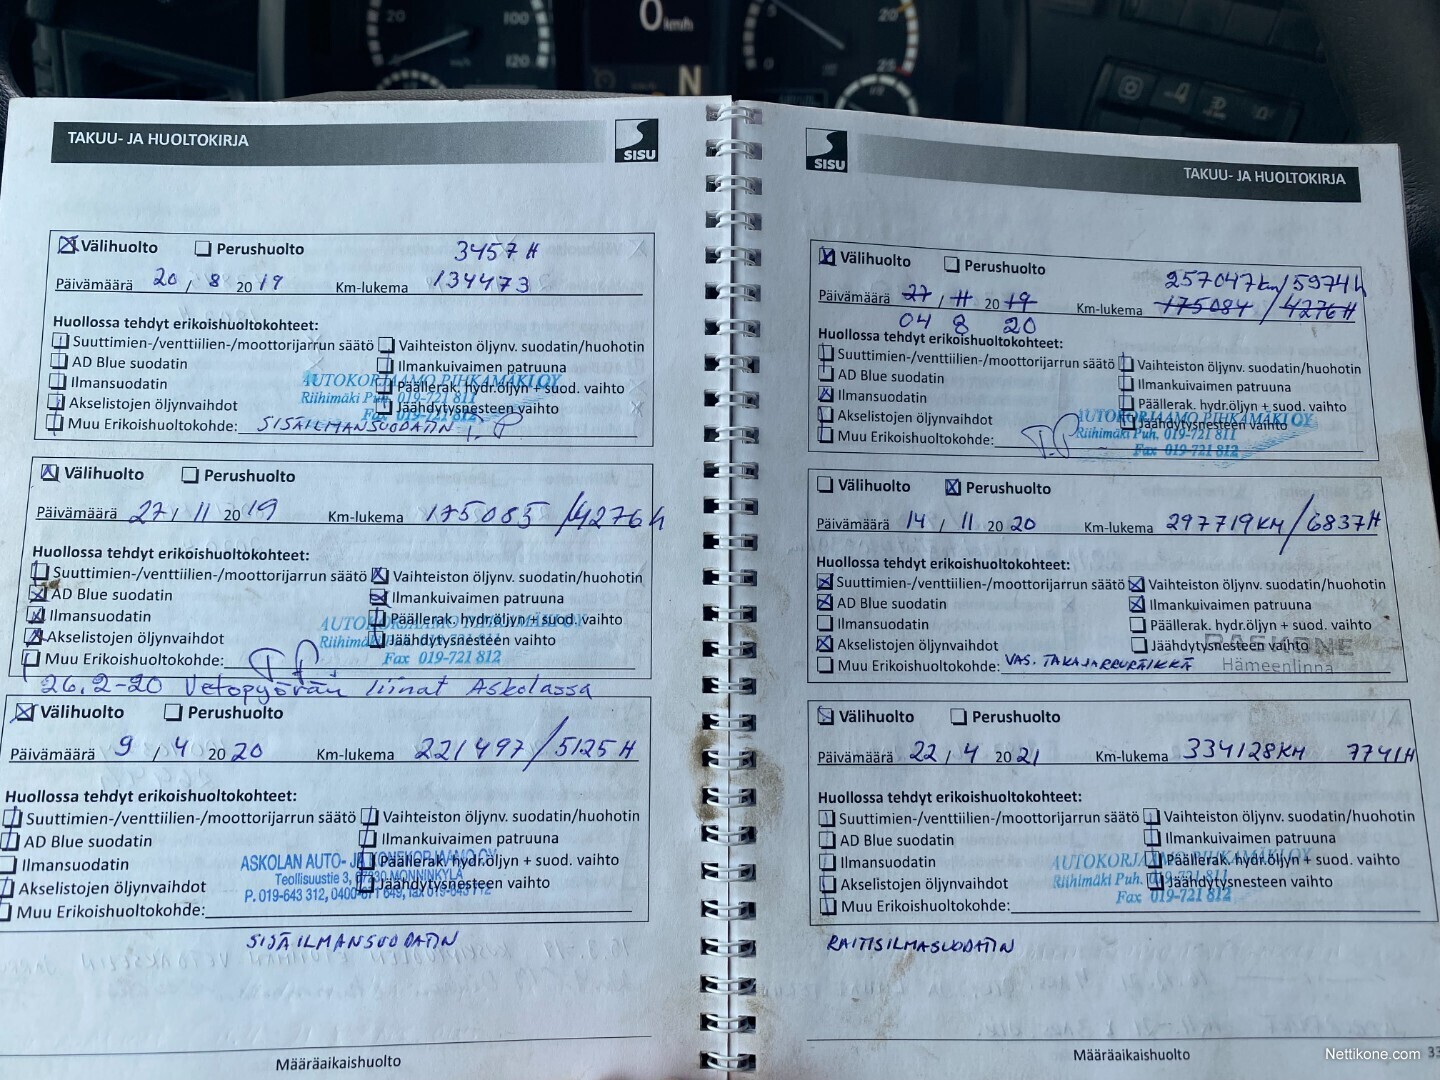 20
100
120
0 km/h
N
5
20
0
25
TAKUU- JA HUOLTOKIRJA
SISU
Välihuolto Perushuolto 3457 H
Päivämäärä 20 / 8 20 19 Km-lukema 134473
Huollossa tehdyt erikoishuoltokohteet:
Suuttimien-/venttiilien-/moottorijarrun säätö Vaihteiston öljynv. suodatin/huohotin
AD Blue suodatin Ilmankuivaimen patruuna
Ilmansuodatin Päällerak. hydr.öljyn + suod. vaihto
Akselistojen öljynvaihdot Jäähdytysnesteen vaihto
Muu Erikoishuoltokohde: SISÄILMANSUODATIN
AUTOKORJAAMO PIHKAMÄKI OY
Riihimäki Puh. 019-721 811
Fax
Välihuolto Perushuolto
Päivämäärä 27 / 11 20 19 Km-lukema 175085 / 4276 h
Huollossa tehdyt erikoishuoltokohteet:
Suuttimien-/venttiilien-/moottorijarrun säätö Vaihteiston öljynv. suodatin/huohotin
AD Blue suodatin Ilmankuivaimen patruuna
Ilmansuodatin Päällerak. hydr.öljyn + suod. vaihto
Akselistojen öljynvaihdot Jäähdytysnesteen vaihto
Muu Erikoishuoltokohde:
AUTOKORJAAMO PIHKAMÄKI OY
Riihimäki
Fax 019-721 812
26.2-20 Vetopyörän liinat Askolassa
Välihuolto Perushuolto
Päivämäärä 9 / 4 20 20 Km-lukema 221497 / 5125 H
Huollossa tehdyt erikoishuoltokohteet:
Suuttimien-/venttiilien-/moottorijarrun säätö Vaihteiston öljynv. suodatin/huohotin
AD Blue suodatin Ilmankuivaimen patruuna
Ilmansuodatin Päällerak. hydr.öljyn + suod. vaihto
Akselistojen öljynvaihdot Jäähdytysnesteen vaihto
Muu Erikoishuoltokohde:
ASKOLAN AUTO- JA KONEKORJAAMO OY
Teollisuustie 3, 07230 MONNINKYLÄ
P. 019-643 312, 0400-671 649, fax 019-643 772
SISÄILMANSUODATIN
Määräaikaishuolto
SISU
TAKUU- JA HUOLTOKIRJA
Välihuolto Perushuolto 257047 km / 5974 h
Päivämäärä 27 / 11 20 19 Km-lukema 175084 / 4276 H
04 8 20
Huollossa tehdyt erikoishuoltokohteet:
Suuttimien-/venttiilien-/moottorijarrun säätö Vaihteiston öljynv. suodatin/huohotin
AD Blue suodatin Ilmankuivaimen patruuna
Ilmansuodatin Päällerak. hydr.öljyn + suod. vaihto
Akselistojen öljynvaihdot Jäähdytysnesteen vaihto
Muu Erikoishuoltokohde:
AUTOKORJAAMO PIHKAMÄKI OY
Riihimäki Puh. 019-721 811
Fax 019-721 812
Välihuolto Perushuolto
Päivämäärä 14 / 11 20 20 Km-lukema 297719 KM / 6837 H
Huollossa tehdyt erikoishuoltokohteet:
Suuttimien-/venttiilien-/moottorijarrun säätö Vaihteiston öljynv. suodatin/huohotin
AD Blue suodatin Ilmankuivaimen patruuna
Ilmansuodatin Päällerak. hydr.öljyn + suod. vaihto
Akselistojen öljynvaihdot Jäähdytysnesteen vaihto
Muu Erikoishuoltokohde: VAS.
RASKONE
Hämeenlinna
Välihuolto Perushuolto
Päivämäärä 22 / 4 20 21 Km-lukema 334128 KM 7741 H
Huollossa tehdyt erikoishuoltokohteet:
Suuttimien-/venttiilien-/moottorijarrun säätö Vaihteiston öljynv. suodatin/huohotin
AD Blue suodatin Ilmankuivaimen patruuna
Ilmansuodatin Päällerak. hydr.öljyn + suod. vaihto
Akselistojen öljynvaihdot Jäähdytysnesteen vaihto
Muu Erikoishuoltokohde:
AUTOKORJAAMO PIHKAMÄKI OY
Riihimäki Puh. 019-721 811
Fax 019-721 812
RAITISILMASUODATIN
Määräaikaishuolto
33
Nettikone.com